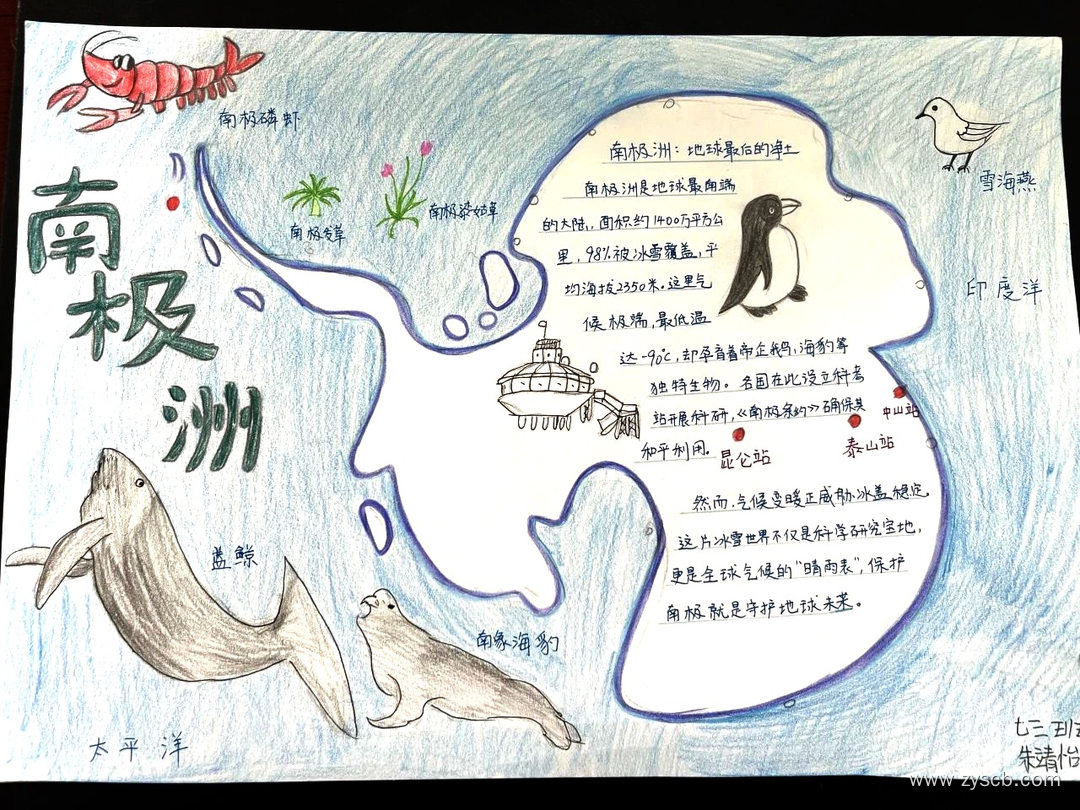 南极磷虾
南极洲
南极发草
南极漆姑草
雪海燕
印度洋
南极洲：地球最后的净土
南极洲是地球最南端
的大陆，面积约1400万平方公
里，98%被冰雪覆盖，平
均海拔2350米。这里气
候极端，最低温
达-90℃，却孕育着帝企鹅，海豹等
独特生物。各国在此设立科考
站开展科研，《南极条约》确保其
和平利用。
中山站
泰山站
昆仑站
然而，气候变暖正威胁冰盖稳定，
这片冰雪世界不仅是科学研究宝地，
更是全球气候的“晴雨表”，保护
南极就是守护地球未来。
蓝鲸
南象海豹
太平洋
七三班
朱靖怡
www.zyscb.com